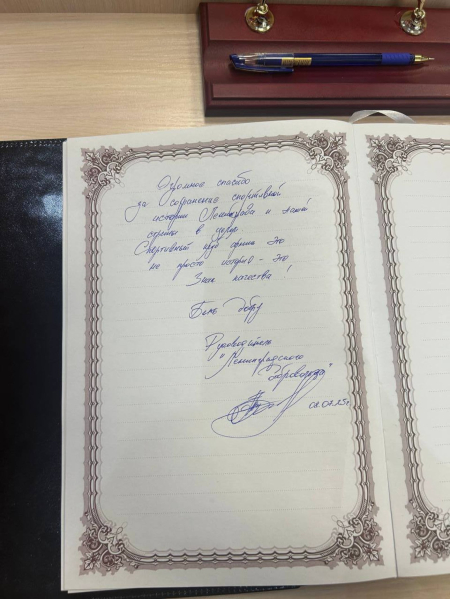 Огромное спасибо
за сохранение спортивной
истории Ленинграда и всей
страны в целом
Спортивный клуб армии это
не просто история - это
Знак качества!
Быть добру
Руководитель
"Ленинградского
Добровольца"